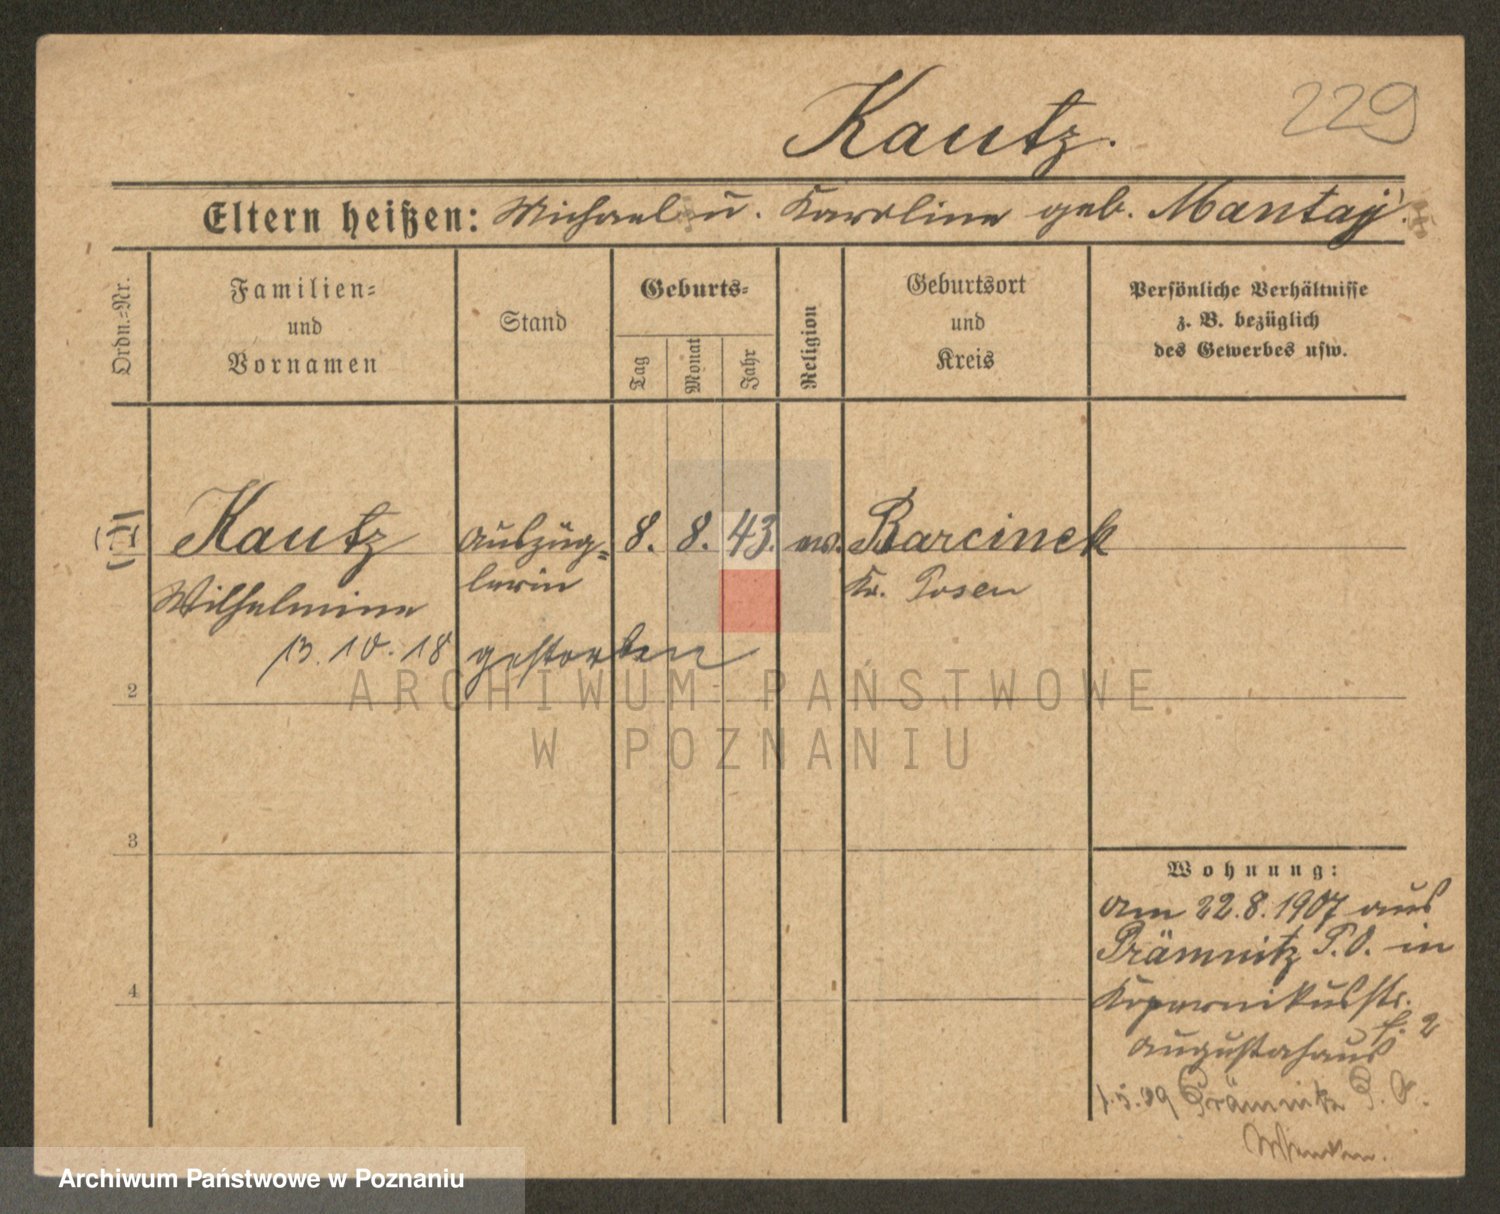 229
Kautz.
Eltern heißen: Michael u. Karoline geb. Mantaj.
Ordn.-Nr.
Familien-
und
Vornamen
Stand
Geburts-
Tag
Monat
Jahr
Religion
Geburtsort
und
Kreis
Persönliche Verhältnisse
z. B. bezüglich
des Gewerbes usw.
Kautz Auszüg- 8. 8. 43. ev. Barcinek
Wilhelmine lerin Kr. Posen
13.10.18 gestorben
2
3
4
Wohnung:
am 22.8.1907 aus
Prämnitz P.O. in
Kopernikusstr.
Augustahaus
f. 2
1.5.09 Prämnitz P. O.
ARCHIWUM PAŃSTWOWE
W POZNANIU
Archiwum Państwowe w Poznaniu